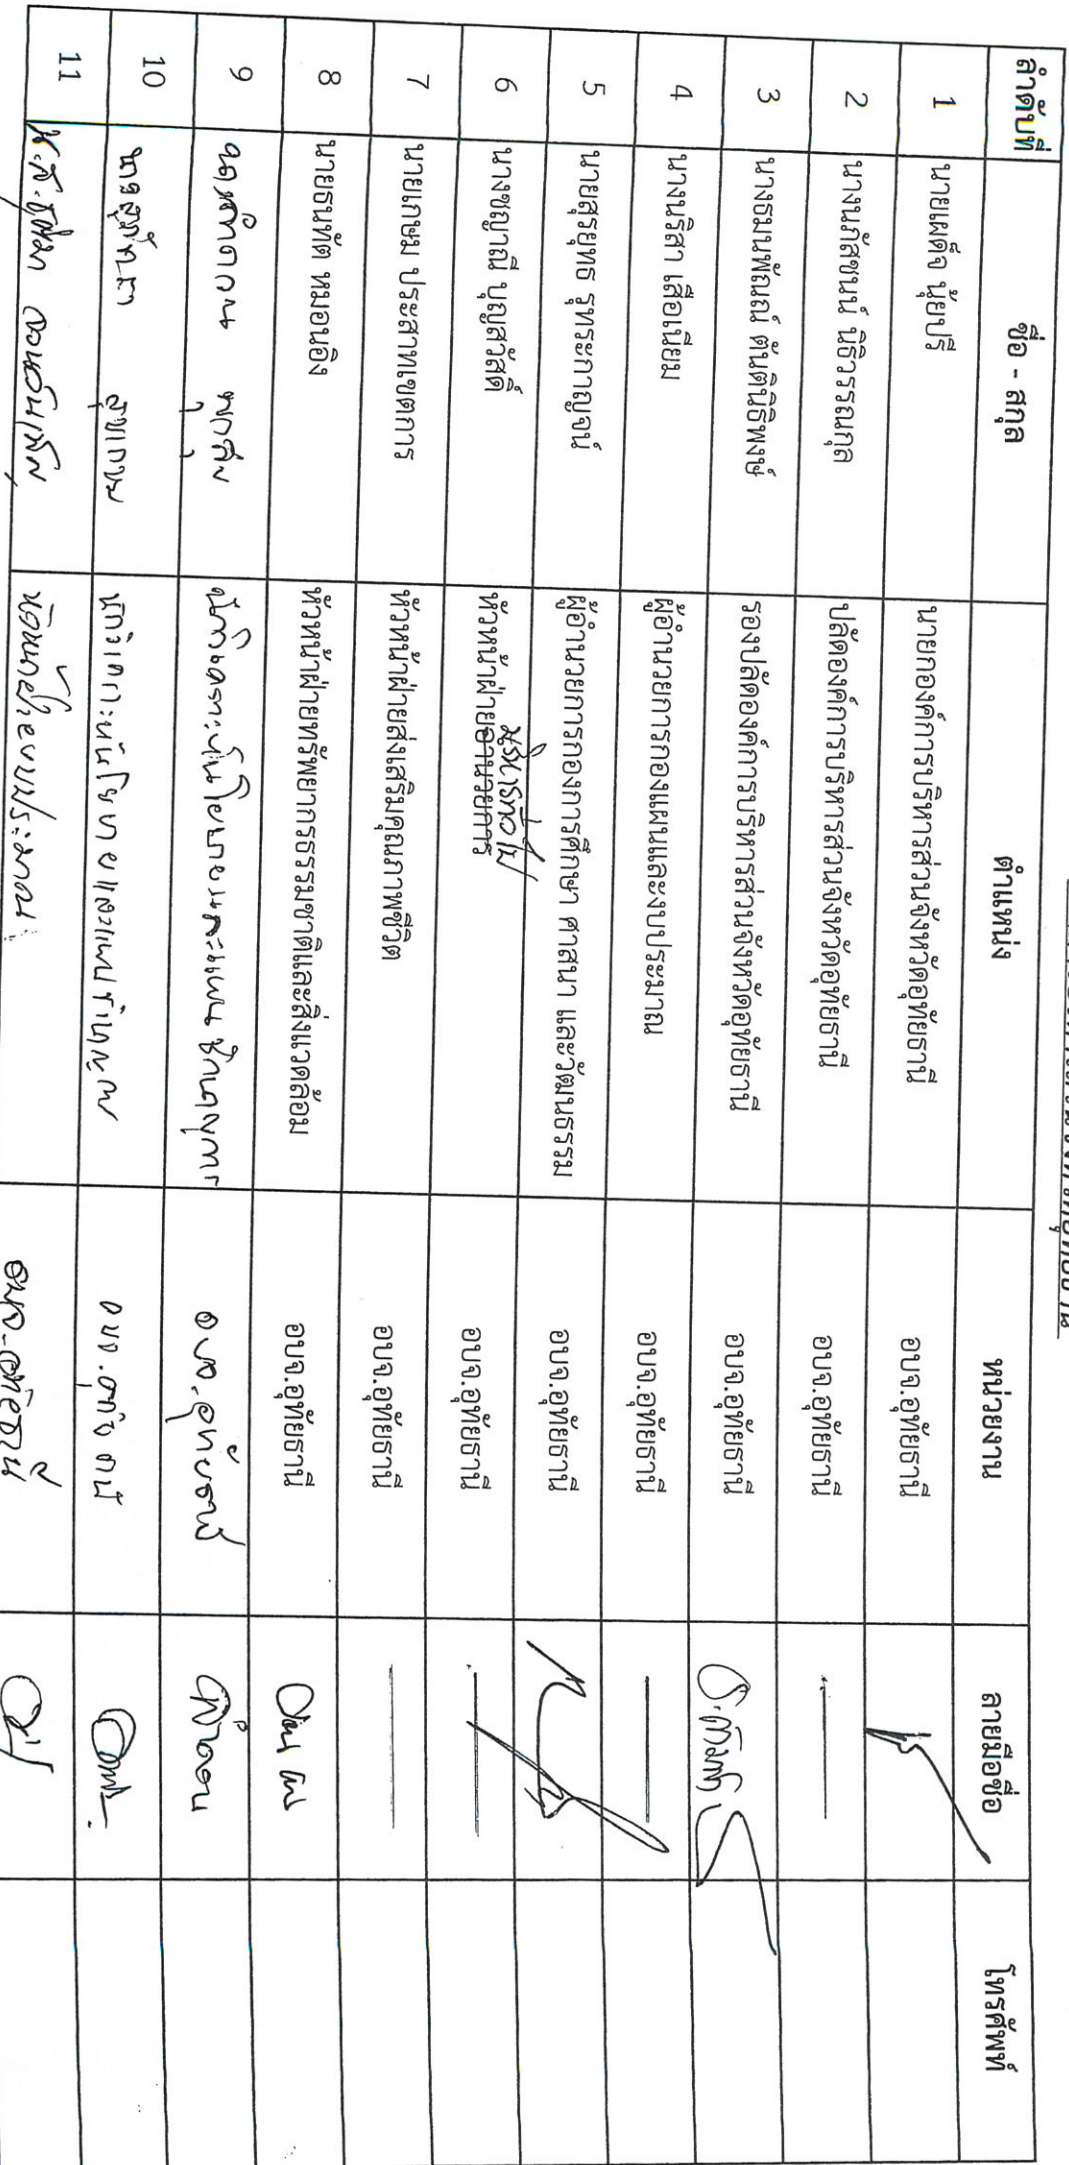 ลำดับที่ ชื่อ - สกุล ตำแหน่ง หน่วยงาน ลายมือชื่อ โทรศัพท์
1 นายเผด็จ นุ้ยปรี นายกองค์การบริหารส่วนจังหวัดอุทัยธานี อบจ.อุทัยธานี
2 นางนภัสชนน์ นิธิวรรณกุล ปลัดองค์การบริหารส่วนจังหวัดอุทัยธานี อบจ.อุทัยธานี
3 นางธมนพัณณ์ ตันตินิธิพงษ์ รองปลัดองค์การบริหารส่วนจังหวัดอุทัยธานี อบจ.อุทัยธานี
4 นางนริสา เสือเนียม ผู้อำนวยการกองแผนและงบประมาณ อบจ.อุทัยธานี
5 นายสุรยุทธ รุทระกาญจน์ ผู้อำนวยการกองการศึกษา ศาสนา และวัฒนธรรม อบจ.อุทัยธานี
6 นางชญาณี บุญสวัสดิ์ หัวหน้าฝ่ายอำนวยการ บริหารทั่วไป อบจ.อุทัยธานี
7 นายเกษม ประสาทเขตการ หัวหน้าฝ่ายส่งเสริมคุณภาพชีวิต อบจ.อุทัยธานี
8 นายธนทัต หมอนอิง หัวหน้าฝ่ายทรัพยากรธรรมชาติและสิ่งแวดล้อม อบจ.อุทัยธานี
9 นักวิเคราะห์นโยบายและแผนชำนาญการ อบจ.อุทัยธานี
10 สุขเกษม นักวิเคราะห์นโยบายและแผนชำนาญการ อบจ.อุทัยธานี
11 หัวหน้าฝ่ายงบประมาณ อบจ.อุทัยธานี